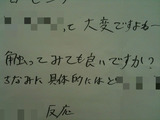 って大変ですよね
触ってみても良いですか?
ちなみに具体的にはど
反応